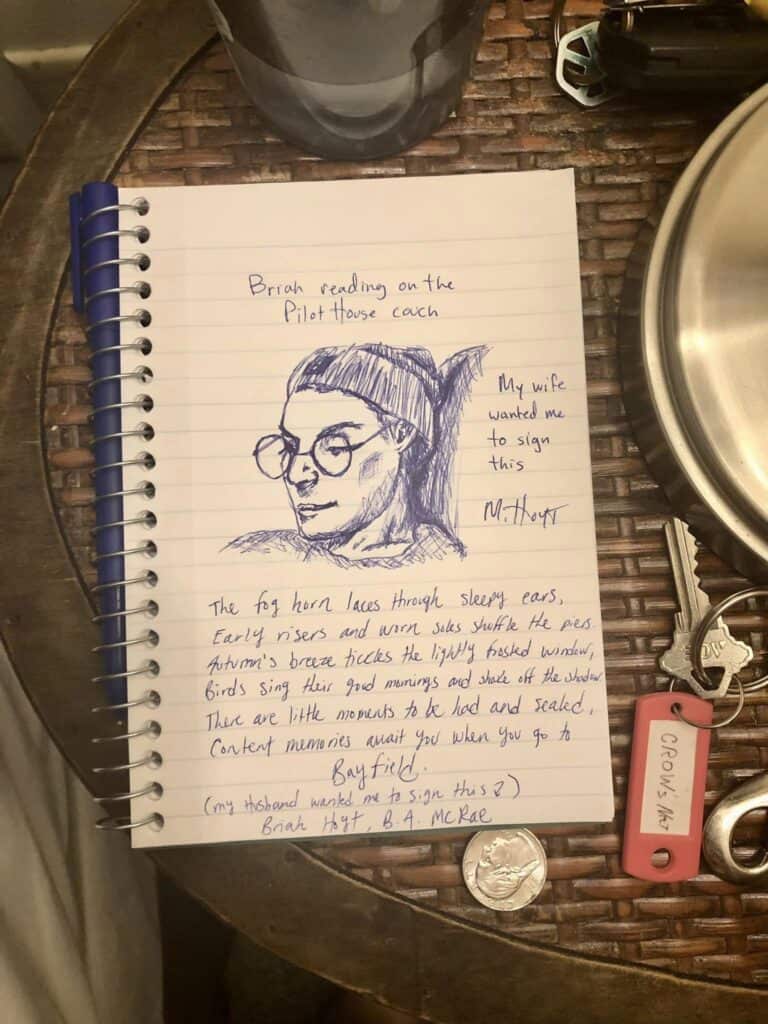 Briah reading on the
Pilot House couch
My wife
wanted me
to sign
this
M. Hoyt
The fog horn laces through sleepy ears,
Early risers and worn soles shuffle the piers.
Autumn's breeze tickles the lightly frosted window,
Birds sing their good mornings and shake off the shadow
There are little moments to be had and sealed,
Content memories await you when you go to
Bayfield.
(my husband wanted me to sign this)
Briah Hoyt, B.A. McRae
CROW'S